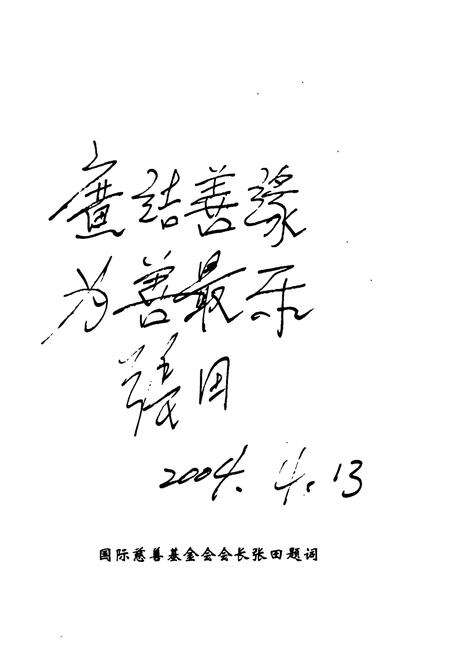 廣結善缘
为善最乐
張田
2004.4.13
国际慈善基金会会长张田题词